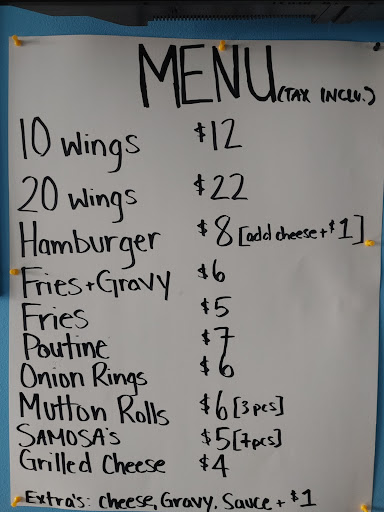 MENU (TAX INCLU.)
10 wings $12
20 wings $22
Hamburger $8 [add cheese + $1]
Fries + Gravy $6
Fries $5
Poutine $7
Onion Rings $6
Mutton Rolls $6 [3 pcs]
SAMOSA'S $5 [7 pcs]
Grilled Cheese $4
Extra's: cheese, Gravy. Sauce + $1